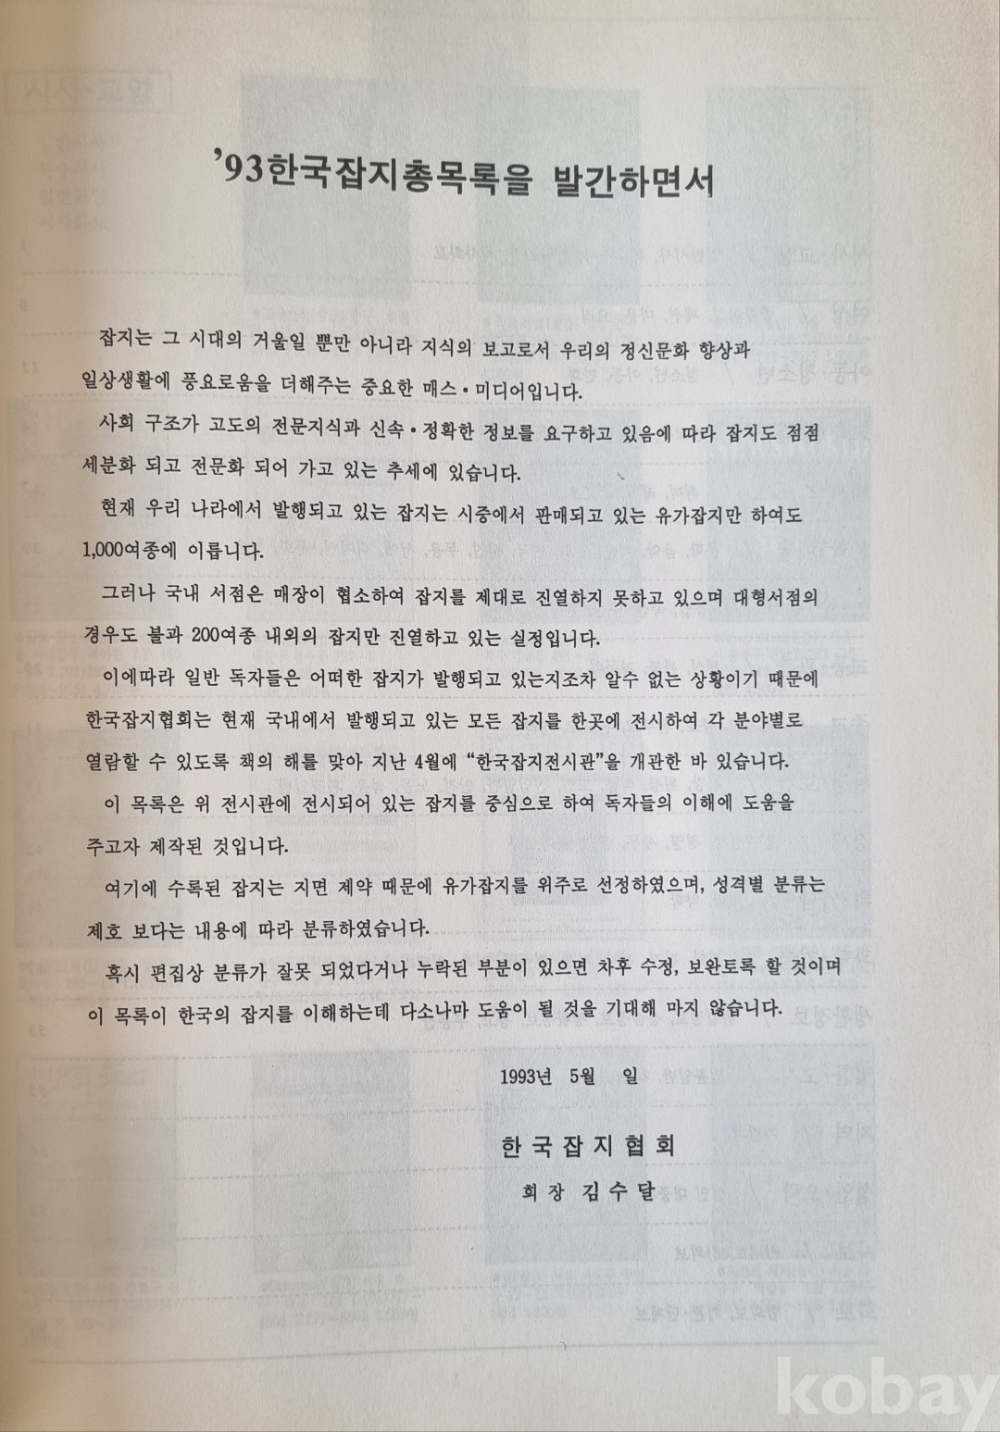 ’93한국잡지총목록을 발간하면서
잡지는 그 시대의 거울일 뿐만 아니라 지식의 보고로서 우리의 정신문화 향상과
일상생활에 풍요로움을 더해주는 중요한 매스・미디어입니다.
사회 구조가 고도의 전문지식과 신속・정확한 정보를 요구하고 있음에 따라 잡지도 점점
세분화 되고 전문화 되어 가고 있는 추세에 있습니다.
현재 우리 나라에서 발행되고 있는 잡지는 시중에서 판매되고 있는 유가잡지만 하여도
1,000여종에 이릅니다.
그러나 국내 서점은 매장이 협소하여 잡지를 제대로 진열하지 못하고 있으며 대형서점의
경우도 불과 200여종 내외의 잡지만 진열하고 있는 실정입니다.
이에따라 일반 독자들은 어떠한 잡지가 발행되고 있는지조차 알수 없는 상황이기 때문에
한국잡지협회는 현재 국내에서 발행되고 있는 모든 잡지를 한곳에 전시하여 각 분야별로
열람할 수 있도록 책의 해를 맞아 지난 4월에 “한국잡지전시관”을 개관한 바 있습니다.
이 목록은 위 전시관에 전시되어 있는 잡지를 중심으로 하여 독자들의 이해에 도움을
주고자 제작된 것입니다.
여기에 수록된 잡지는 지면 제약 때문에 유가잡지를 위주로 선정하였으며, 성격별 분류는
제호 보다는 내용에 따라 분류하였습니다.
혹시 편집상 분류가 잘못 되었다거나 누락된 부분이 있으면 차후 수정, 보완토록 할 것이며
이 목록이 한국의 잡지를 이해하는데 다소나마 도움이 될 것을 기대해 마지 않습니다.
1993년 5월 일
한국잡지협회
회장 김수달
kobay